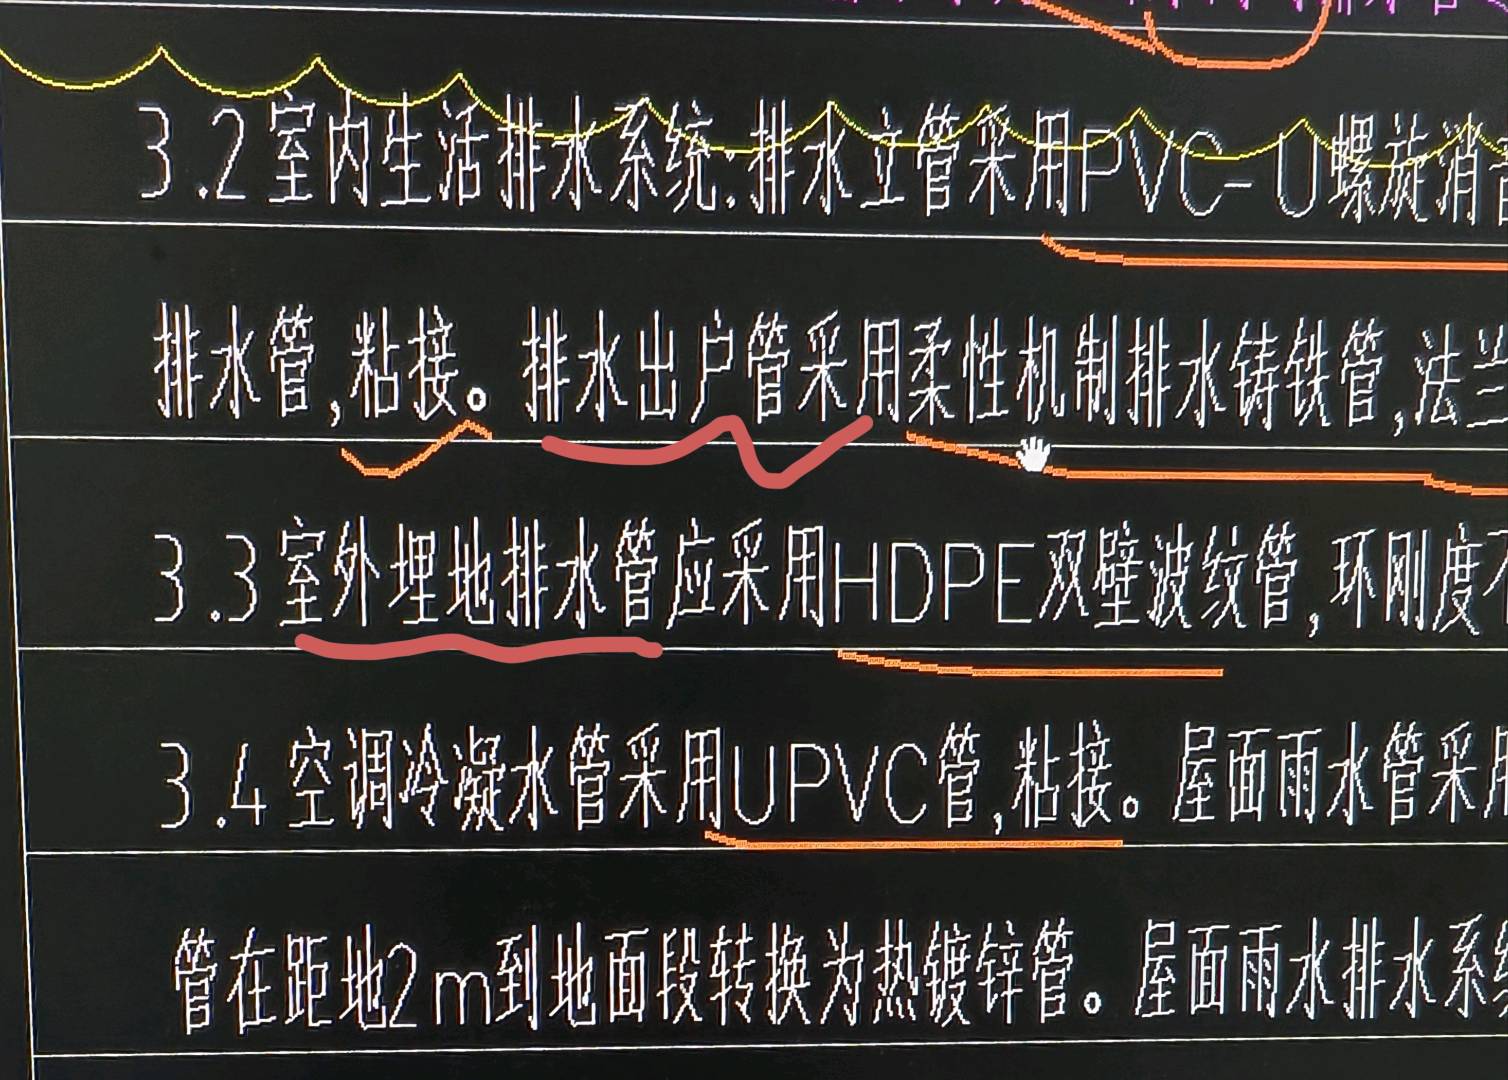 3.2室内生活排水系统:排水立管采用PVC-U螺旋消音
排水管,粘接。排水出户管采用柔性机制排水铸铁管,法兰
3.3室外埋地排水管应采用HDPE双壁波纹管,环刚度不
3.4空调冷凝水管采用UPVC管,粘接。屋面雨水管采用
管在距地2m到地面段转换为热镀锌管。屋面雨水排水系统